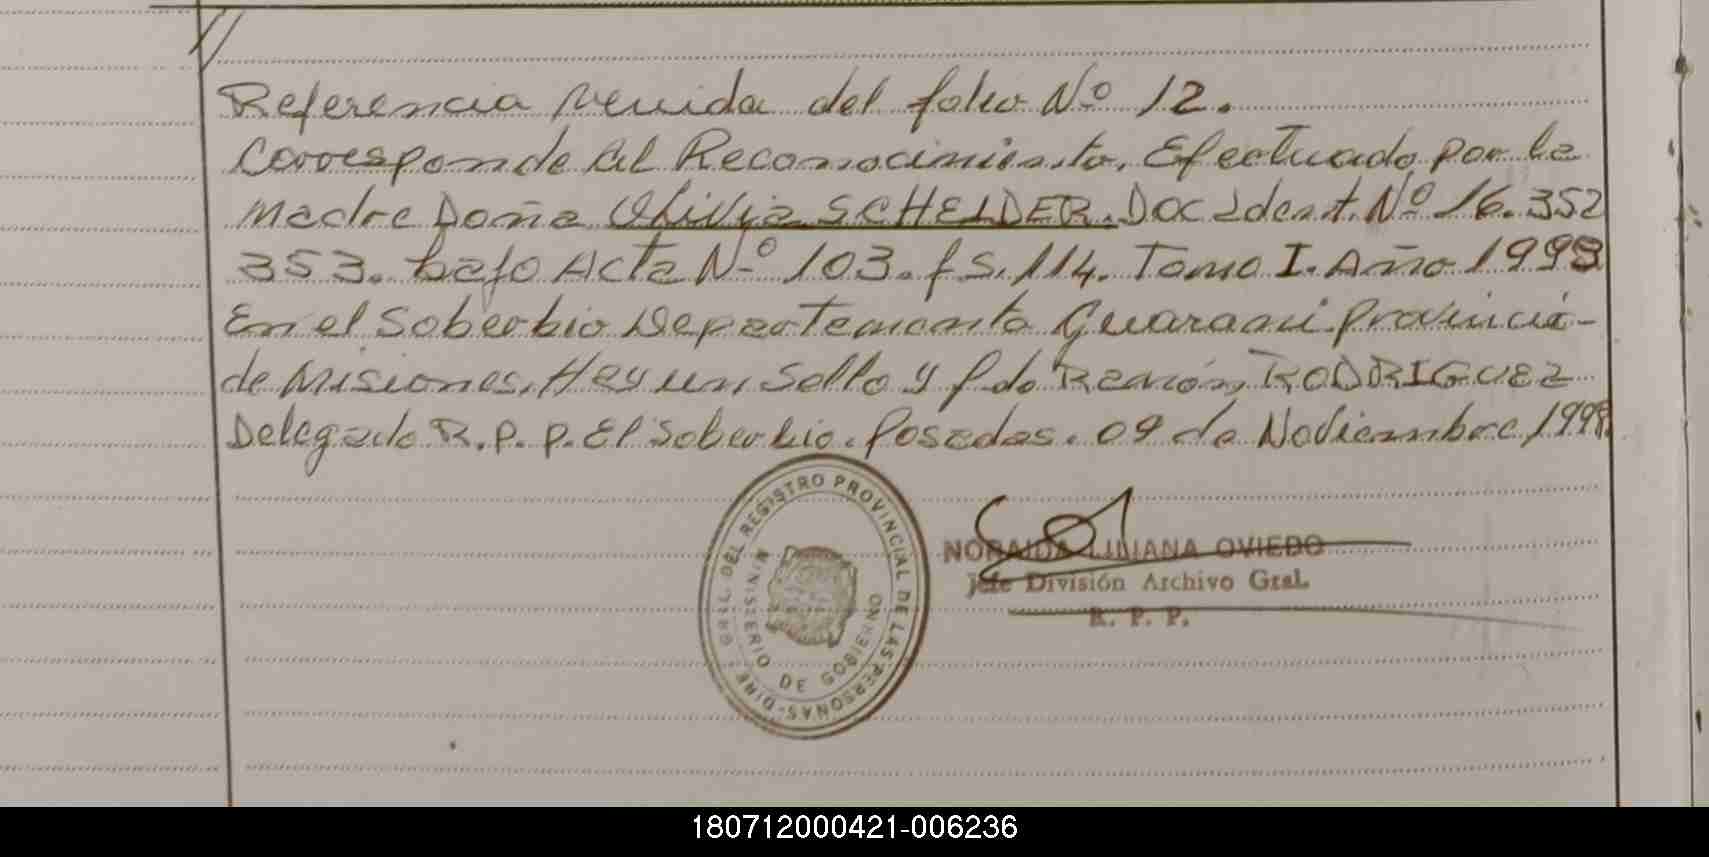 Referencia venida del folio Nº 12.
Corresponde al Reconocimiento. Efectuado por la
Madre Doña Olivia SCHEIDER. Doc Ident. Nº 16.352
353. bajo Acta Nº 103. fs. 114. Tomo I. Año 1998
En el Soberbio Departamento Guarani. Provincia
de Misiones. Hay un Sello y fdo Ramón RODRIGUEZ
Delegado R.P.P. El Soberbio. Posadas. 09 de Noviembre 1998.
DIRE. GRAL. DEL REGISTRO PROVINCIAL DE LAS PERSONAS
MINISTERIO DE GOBIERNO
NORAIDA LILIANA OVIEDO
Jefe División Archivo Gral.
R. P. P.
180712000421-006236